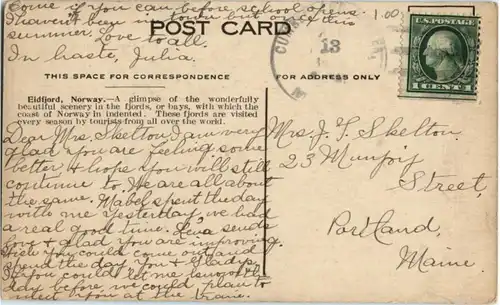 Come if you can before school opens.
I haven't been in town but once this
summer. Love to all.
In haste, Julia.
1.00
POST CARD
THIS SPACE FOR CORRESPONDENCE
FOR ADDRESS ONLY
U.S. POSTAGE
1 CENT 1
13
Eidfjord, Norway.—A glimpse of the wonderfully
beautiful scenery in the fjords, or bays, with which the
coast of Norway in indented. These fjords are visited
every season by tourists from all over the world.
Dear Mrs. Skelton, I am very
glad you are feeling some
better & hope you will still
continue to. We are all about
the same. Mabel spent the day
with me yesterday, we had
a real good time. sends
love & glad you are improving.
Wish you could come out and
spend the day, you & Gladys.
If you could let me know the
day before, we could plan to
meet you at the
Mrs. J. F. Skelton
23 Munjoy
Street,
Portland,
Maine.